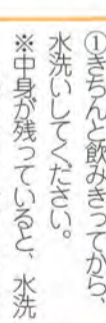 ①きちんと飲みきってから、
水洗いしてください。
※中身が残っていると、水洗